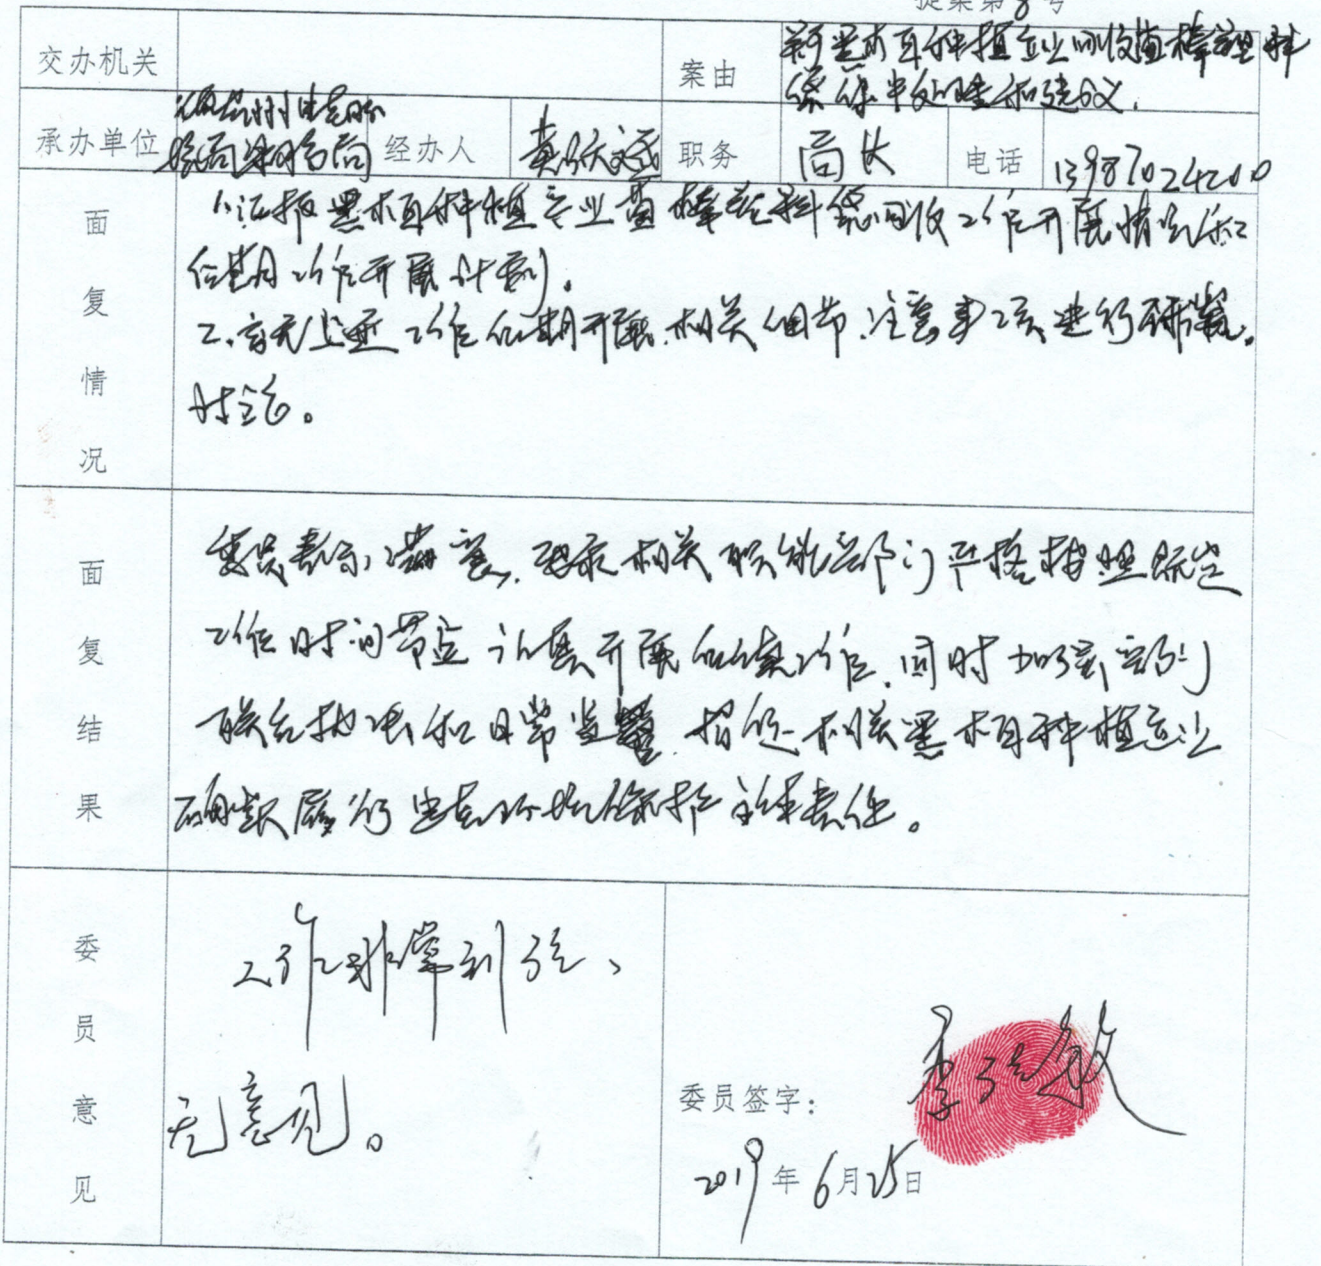 提案第8号
交办机关
案由
对黑木耳种植企业回收菌棒塑料
袋集中处理的建议.
承办单位
环境局梁河分局
经办人
职务 局长
电话 13987024200
面复情况
1.汇报黑木耳种植企业菌棒塑料袋回收工作开展情况和
后期工作开展计划。
2.就上述工作后期开展相关细节.注意事项进行
讨论。
面复结果
委员表示满意.要求相关职能部门严格按照既定
工作时间节点认真开展后续工作.同时加强部门
联合执法和日常监督.督促相关黑木耳种植企业
确实履行生态环境保护主体责任。
委员意见
工作非常到位、
无意见。
委员签字:
2019年6月25日